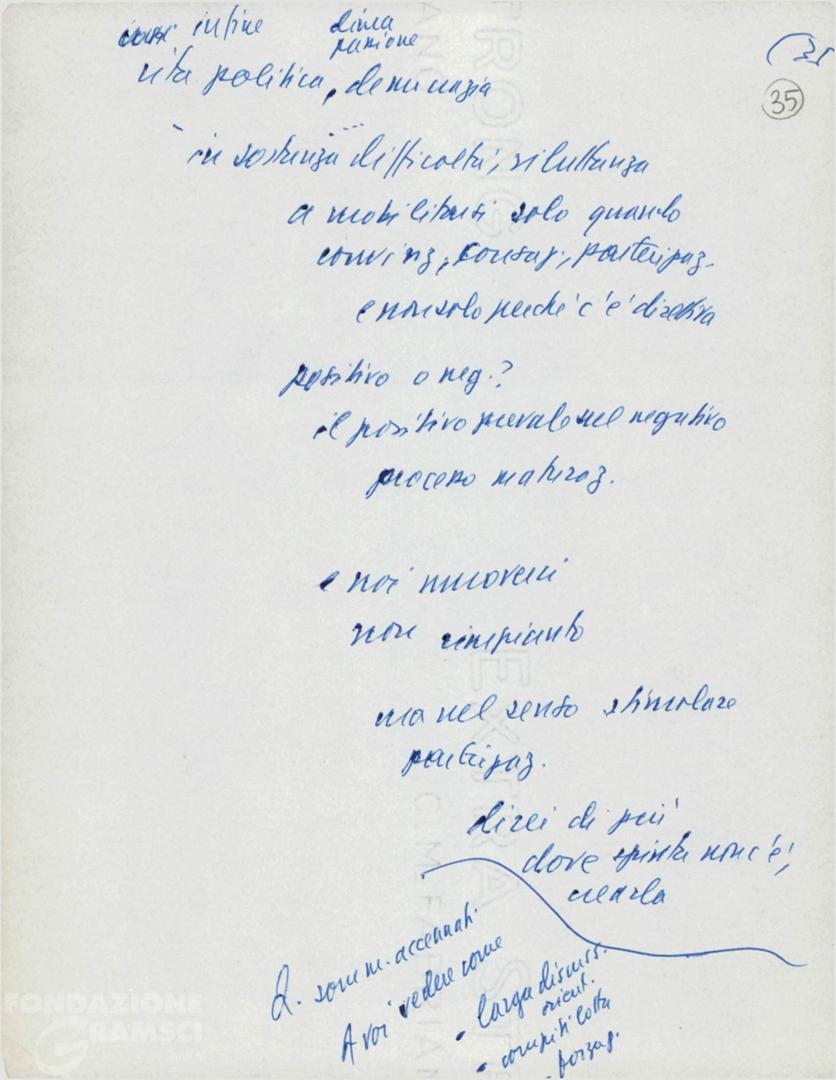 così infine
vita politica, denunzia
(35
35
in sostanza difficoltà, riluttanza
a mobilitarsi solo quando
convinz., consap., partecipaz.
e non solo perché c'è direttiva
positivo o neg.?
il positivo prevale sul negativo
processo maturaz.
e noi muoverci
non rimpianto
ma nel senso stimolare
partecipaz.
direi di più
dove spinta non c'è,
crearla
Q. somm. accennati
A voi vedere come
• larga discuss.
orient.
• compiti lotta
FONDAZIONE
GRAMSCI